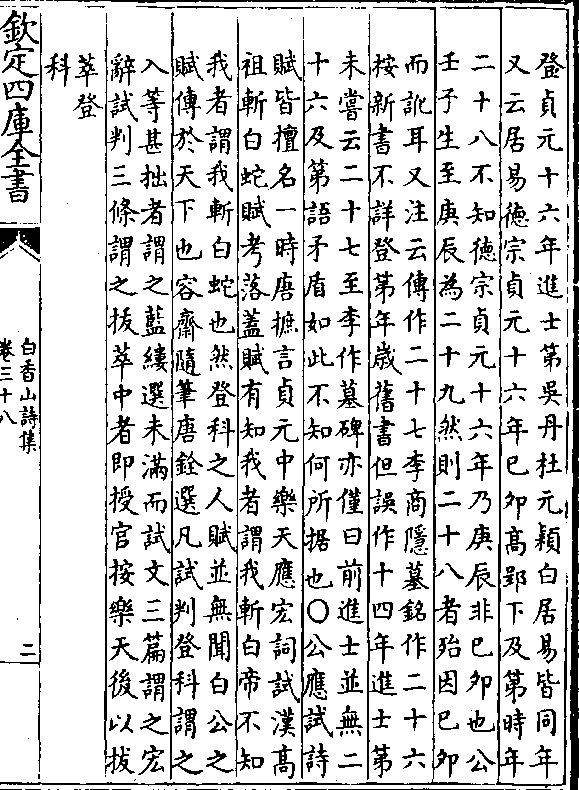 登貞元十六年進士第吳丹杜元穎白居易皆同年
又云居易德宗貞元十六年已夘髙郢下及第時年
二十八不知德宗貞元十六年乃庚辰非已夘也公
壬子生至庚辰為二十九然則二十八者殆因已夘
而訛耳又注云傳作二十七李商隱墓銘作二十六
桉新書不詳登第年歳舊書但誤作十四年進士第
未嘗云二十七至李作墓碑亦僅曰前進士並無二
十六及第語矛盾如此不知何所据也〇公應試詩
賦皆擅名一時唐摭言貞元中樂天應宏詞試漢髙
祖斬白蛇賦考落蓋賦有知我者謂我斬白帝不知
我者謂我斬白蛇也然登科之人賦並無聞白公之
賦傳於天下也容齋隨筆唐銓選凡試判登科謂之
入等甚拙者謂之藍縷選未滿而試文三篇謂之宏
辭試判三條謂之拔萃中者即授官按樂天後以拔
萃登
科
欽定四庫全書
白香山詩集
卷三十八
二